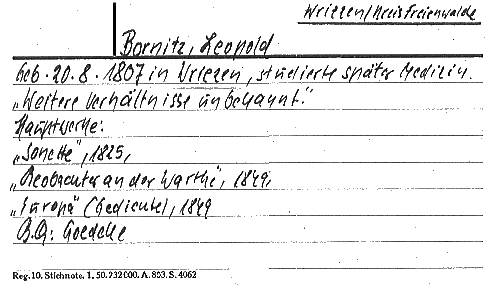 Wriezen/Kreis Freienwalde
Bornitz, Leopold
Geb. 20.8.1807 in Wriezen, studierte später Medizin.
„Weitere Verhältnisse unbekannt."
Hauptwerke:
„Sonette", 1825,
„Beobachter an der Warthe", 1849,
„Europa" (Gedichte), 1849
B.Q: Goedeke
Reg. 10. Stichnote. 1. 50. 232 000. A. 803. S. 4062